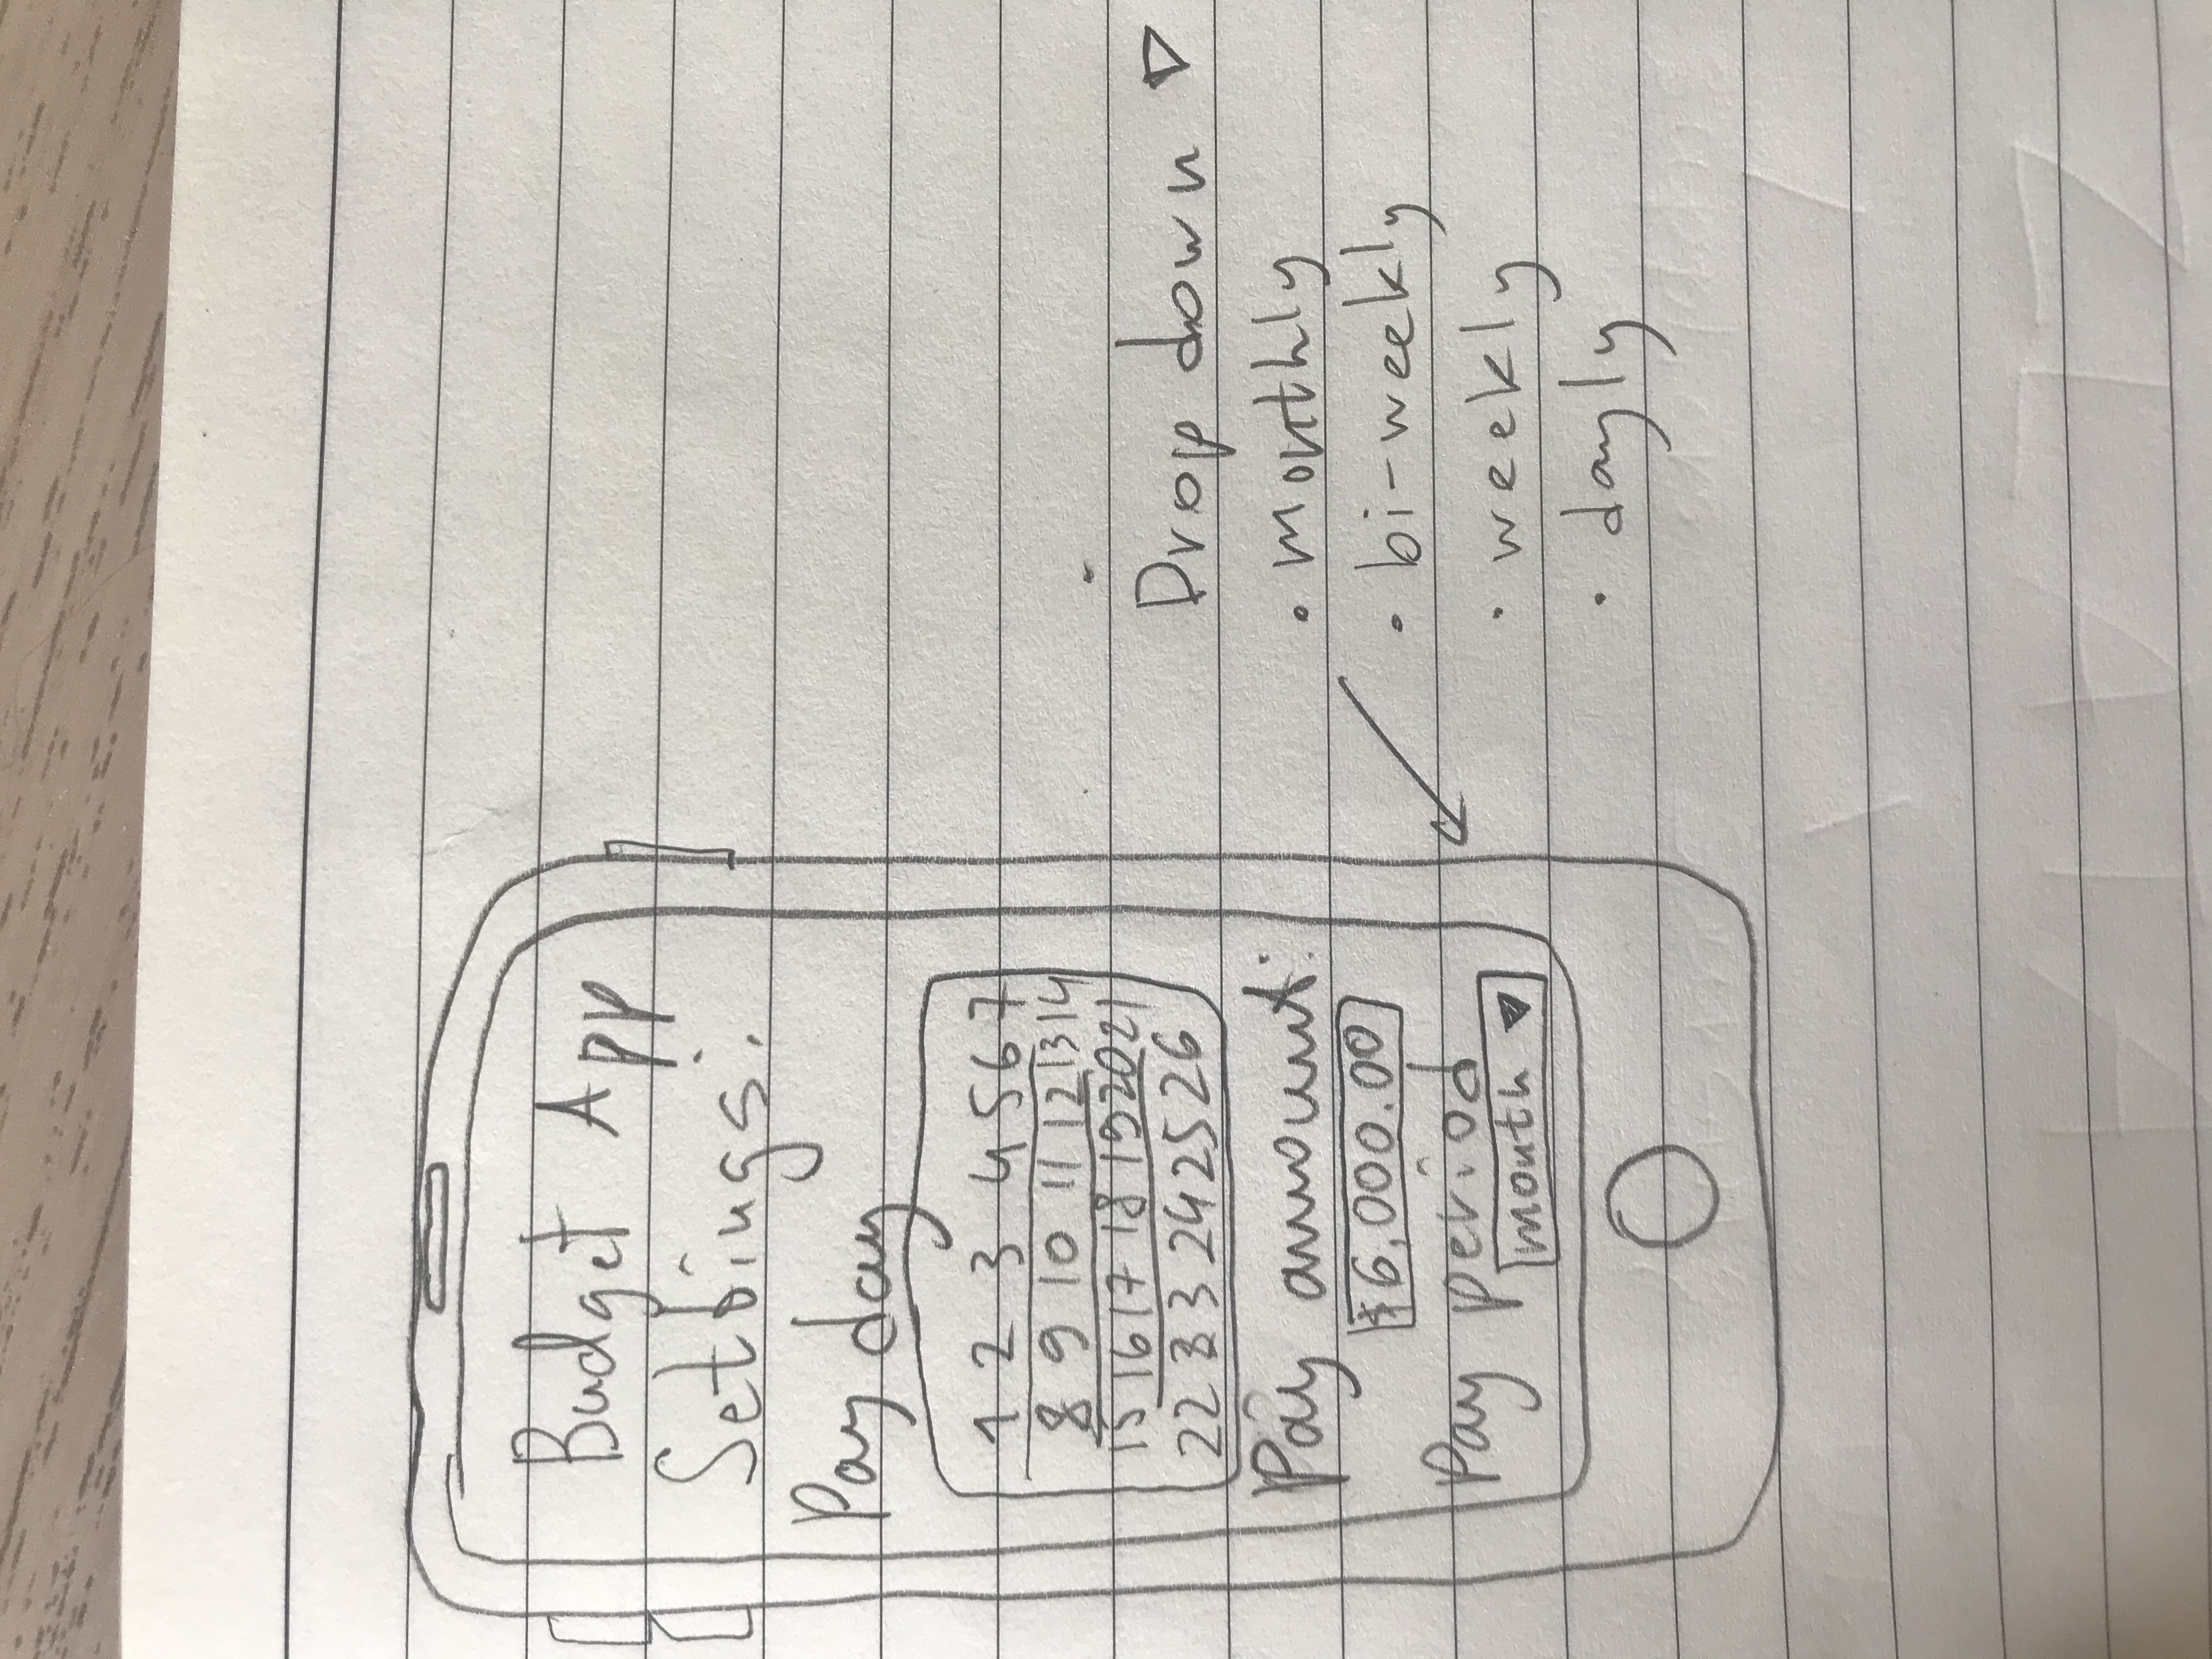 Budget App
Settings:
Pay day
1 2 3 4 5 6 7
8 9 10 11 12 13 14
15 16 17 18 19 20 21
22 23 24 25 26
Pay amount:
$6,000.00
Pay period
month
Drop down
• monthly
• bi-weekly
• weekly
• dayly